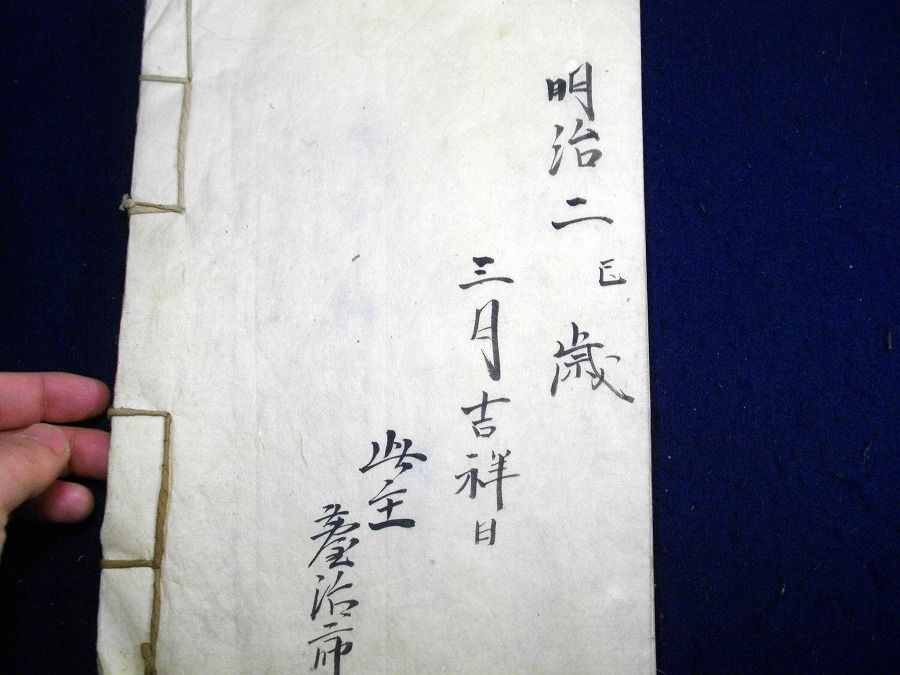 明治二巳歳
三月吉祥日
此主
臺治市